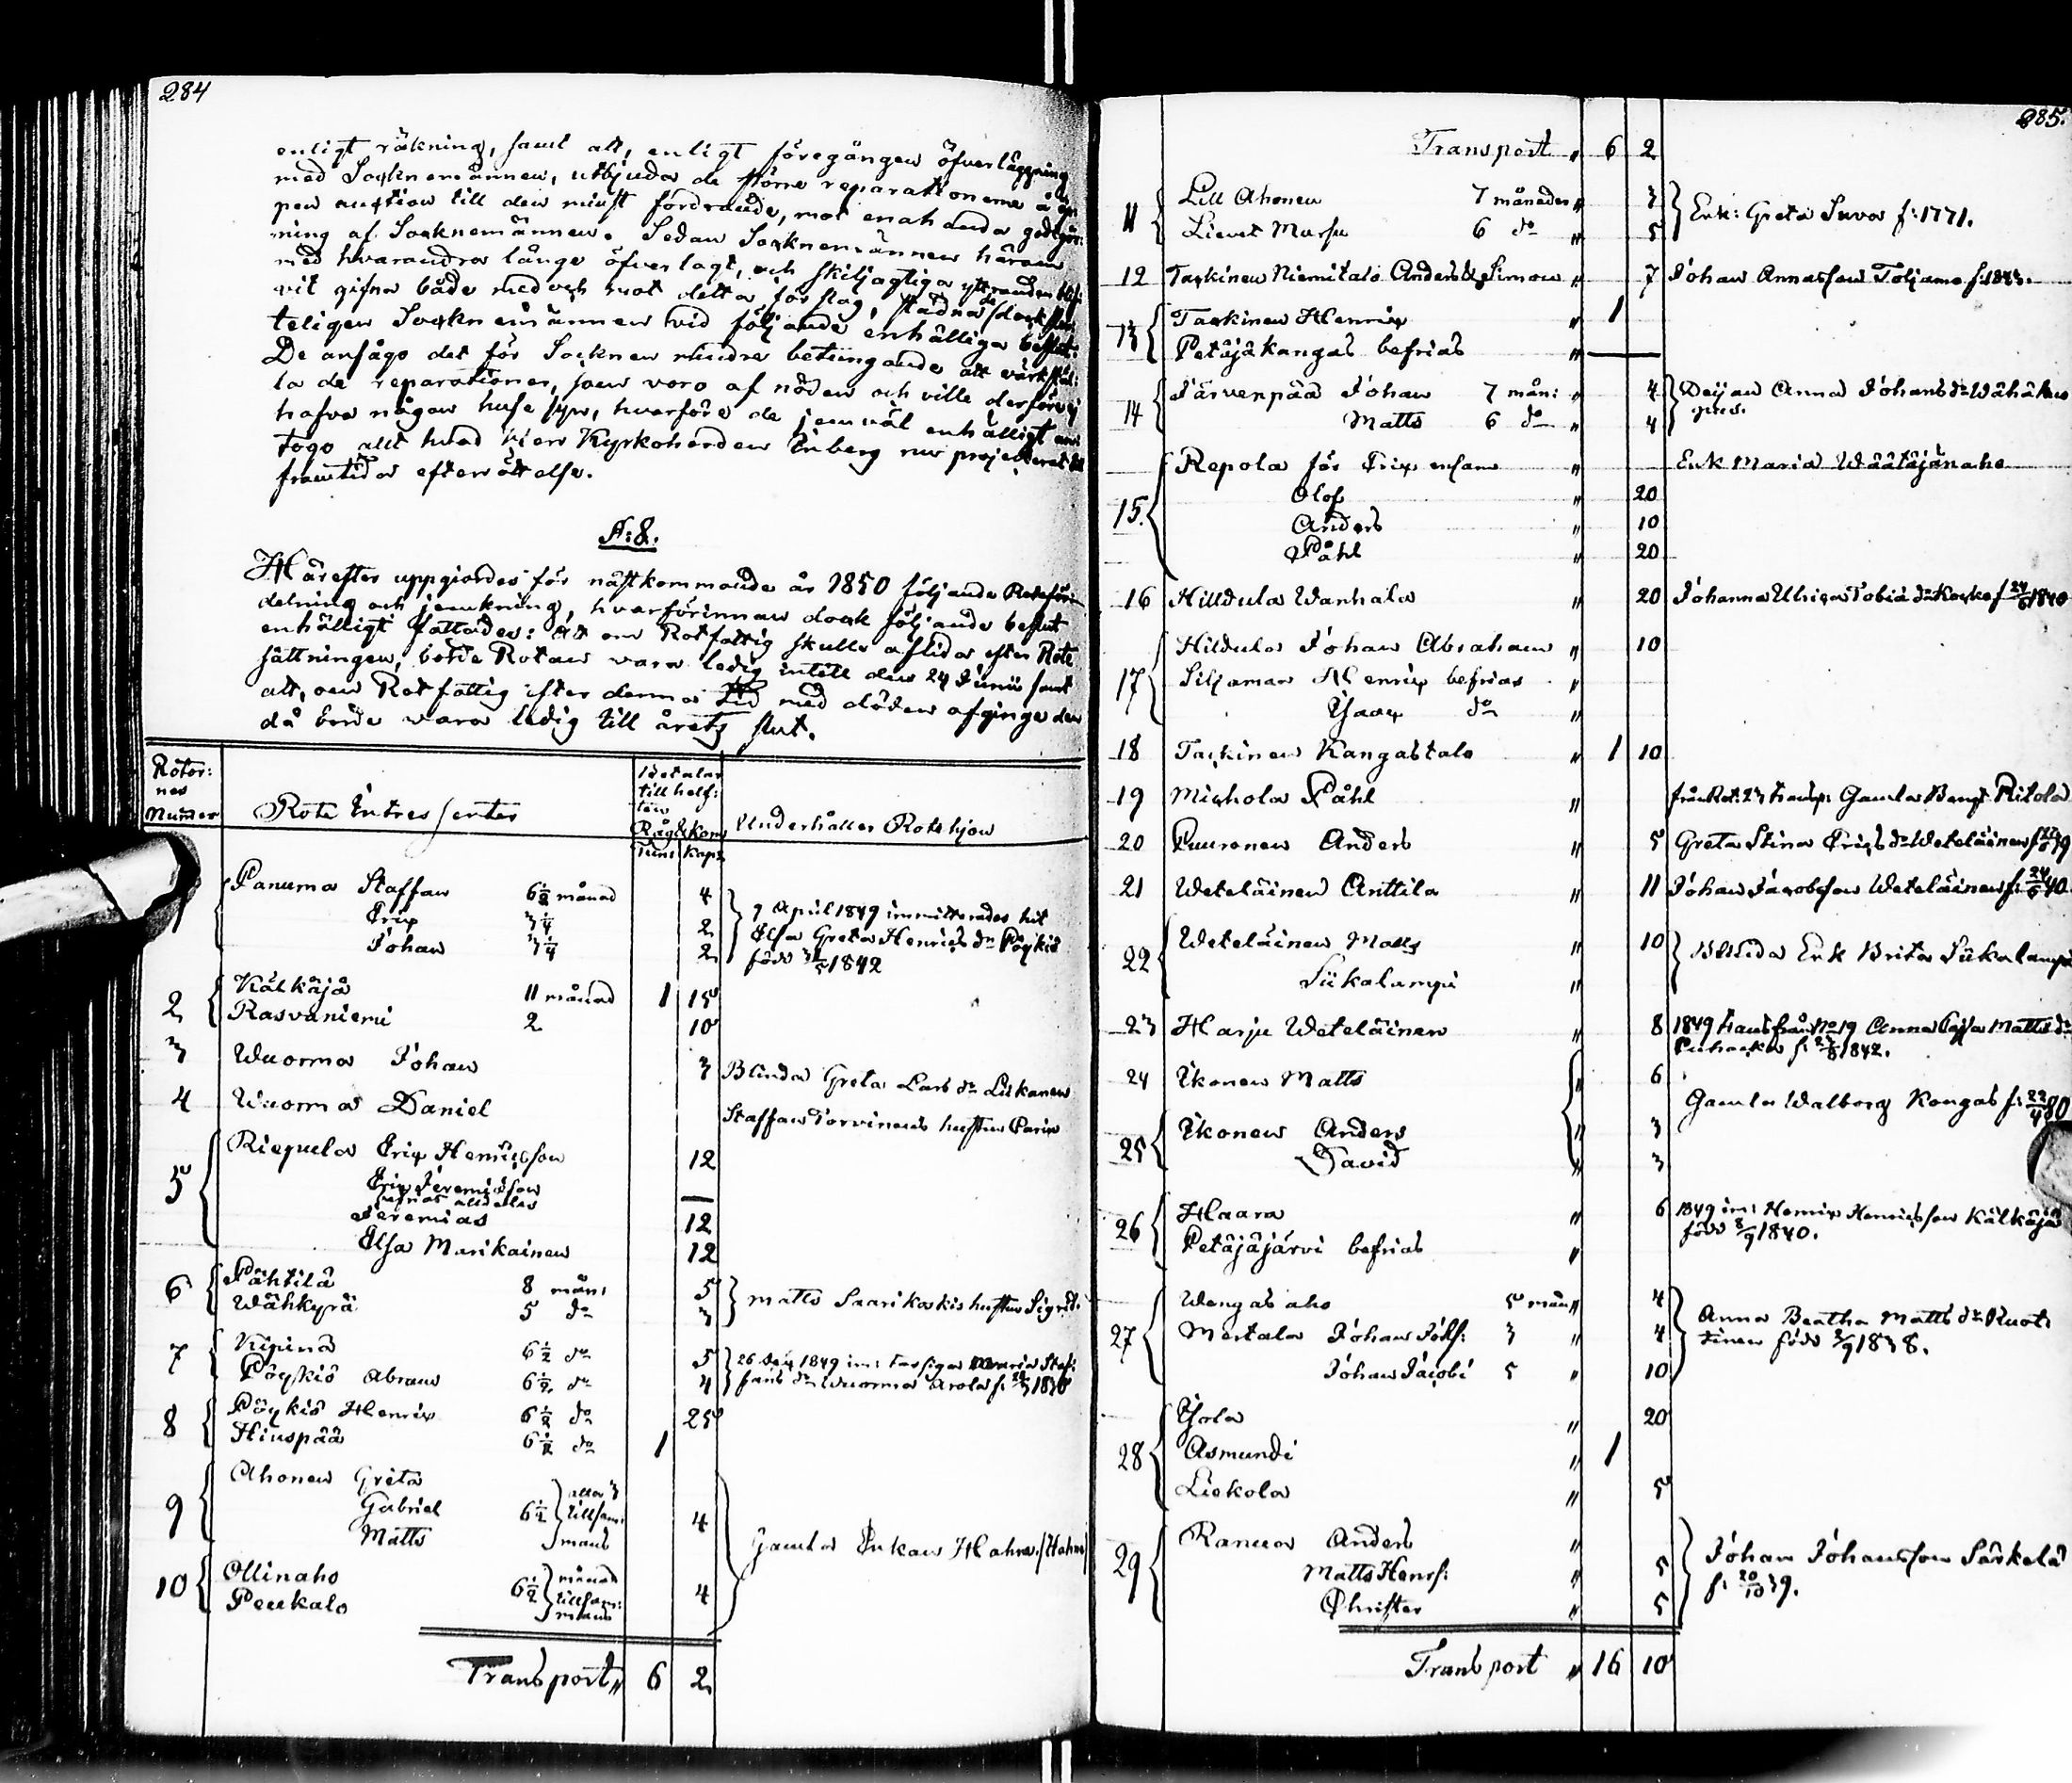 284
enligt räkning, samt att, enligt föregången öfverläggning
med Socknemännen, utbjuda de större reparationerne å öp
pen auction till den minst fordrande, mot enahanda godtgör:
ning af Socknemännen. Sedan Socknemännen härom
med hvarandra länge öfverlagt, och skiljagtiga yttranden blif
vit gifna både med och mot detta förslag, stadnade dock
teligen Socknemännen vid följande enhälliga beslut:
De ansågo det för Socknen mindre betungande att verkstäl:
la de reparationer, som voro af nöden och ville derföre ej
hafva någon huse syn, hvarföre de jemväl enhälligt an
togo allt hvad Herr Kyrkoherden Enberg nu projecterat till
framtida efterrättelse.
§:8.
Härefter uppgjordes för nästkommande år 1850 följande Roteför:
delning och jemkning, hvarförinnan dock följande beslut
enhälligt fattades: Att om Rotfattig skulle aflida efter Rote
sättningen, borde Rotan vara ledig intill den 24 Junii samt
att, om Rotfattig efter denna tid med döden afginge den
då borde vara ledig till årets slut.
Rotor: nes Numer
Rote Intressenter
Betalar till helf: ten Råg & Korn
Tun: Kap:
Underhåller Rotehjon
1 Panuma Staffan 6½ månad 4
Eric 3¼ 2
Johan 3¼ 2
9 April 1849 inmitterades hit
Elsa Greta Henrics dr Pöykiö
född 1842
2 Kälkäjä 11 månad 1 15
Rasvaniemi 2 10
3 Wuorma Johan 3 Blinda Greta Lars dr Liikanen
4 Wuorma Daniel Staffan Torvinens hustru Carin
5 Riepula Eric Henricsson 12
Eric Jeremiasson
alldeles —
Jeremias 12
Elsa Marikainen 12
6 Pähtilä 8 mån: 5
Wähkyrä 5 do 3
Matts Saarikoskis hustru Sigrid.
7 Kipinä 6½ do 5
Pöykiö Abram 6½ do 4
1849 im: Maria Staf:
fans dr Wuorma Arola
8 Pöykiö Henric 6½ do 25
Hiuspää 6½ do 1
9 Ahonen Greta
Gabriel 6½ alla 3 tillsam: mans 4
Matts
10 Ollinaho
Penkalo 6½ månad tillsam: mans 4
Gamla Enkan Hahna
Transport " 6 2
285.
Transport " 6 2
11 Lill Ahonen 7 månader " 3
Lievet Mursu 6 do " 5
Enk: Greta Suva f: 1771.
12 Taskinen Niemitalo Anders & Simon " 7 Johan Annasson Toljamo
13 Taskinen Henric " 1
Petäjäkangas befrias " —
14 Järvenpää Johan 7 mån: " 4
Matts 6 do " 4
Dejan Anna Johans dr Wähäkan
gas.
15. Repola för Eric ensam " Enk Maria Wäätäjänaho
Olof " 20
Anders " 10
Påhl " 20
16 Hilldula Wanhala " 20 Johanna Ulrica Tobiæ dr Koski 1840
17 Hildula Johan Abraham " 10
Siljaman Henric befrias "
Isaac do "
18 Taskinen Kangastalo " 1 10
19 Mickola Påhl " från Rot: 23 Gamla Bengt Ritola
20 Puuronen Anders " 5 Greta Stina Erics dr Weteläinen
21 Weteläinen Anttila " 11 Johan Jacobsson Weteläinen f: 24/6 40.
22 Weteläinen Matts " 10
Siikalampi "
Blinda Enk Brita Siikalampi
23 Harju Weteläinen " 8 1849 trans från No 19 Anna Cajsa Matts dr
1842.
24 Ikonen Matts " 6
Gamla Walborg Kangas f: 22/4 80
25 Ikonen Anders " 3
David " 3
26 Haara " 6 1849 im: Henric Henricsson Kälkäjä
född 8/9 1840.
Petäjäjärvi befrias "
27 Wengasaho 5 mån " 4
Mestala Johan Johs: 3 " 4
Johan Jacobi 5 " 10
Anna Beatha Matts dr Ruot:
tinen född 3/9 1838.
28 Yola " 20
Asmundi " 1
Liekola " 5
29 Ranua Anders "
Matts Henrs: " 5
Christer " 5
Johan Johansson Särkelä
f: 20/10 39.
Transport " 16 10